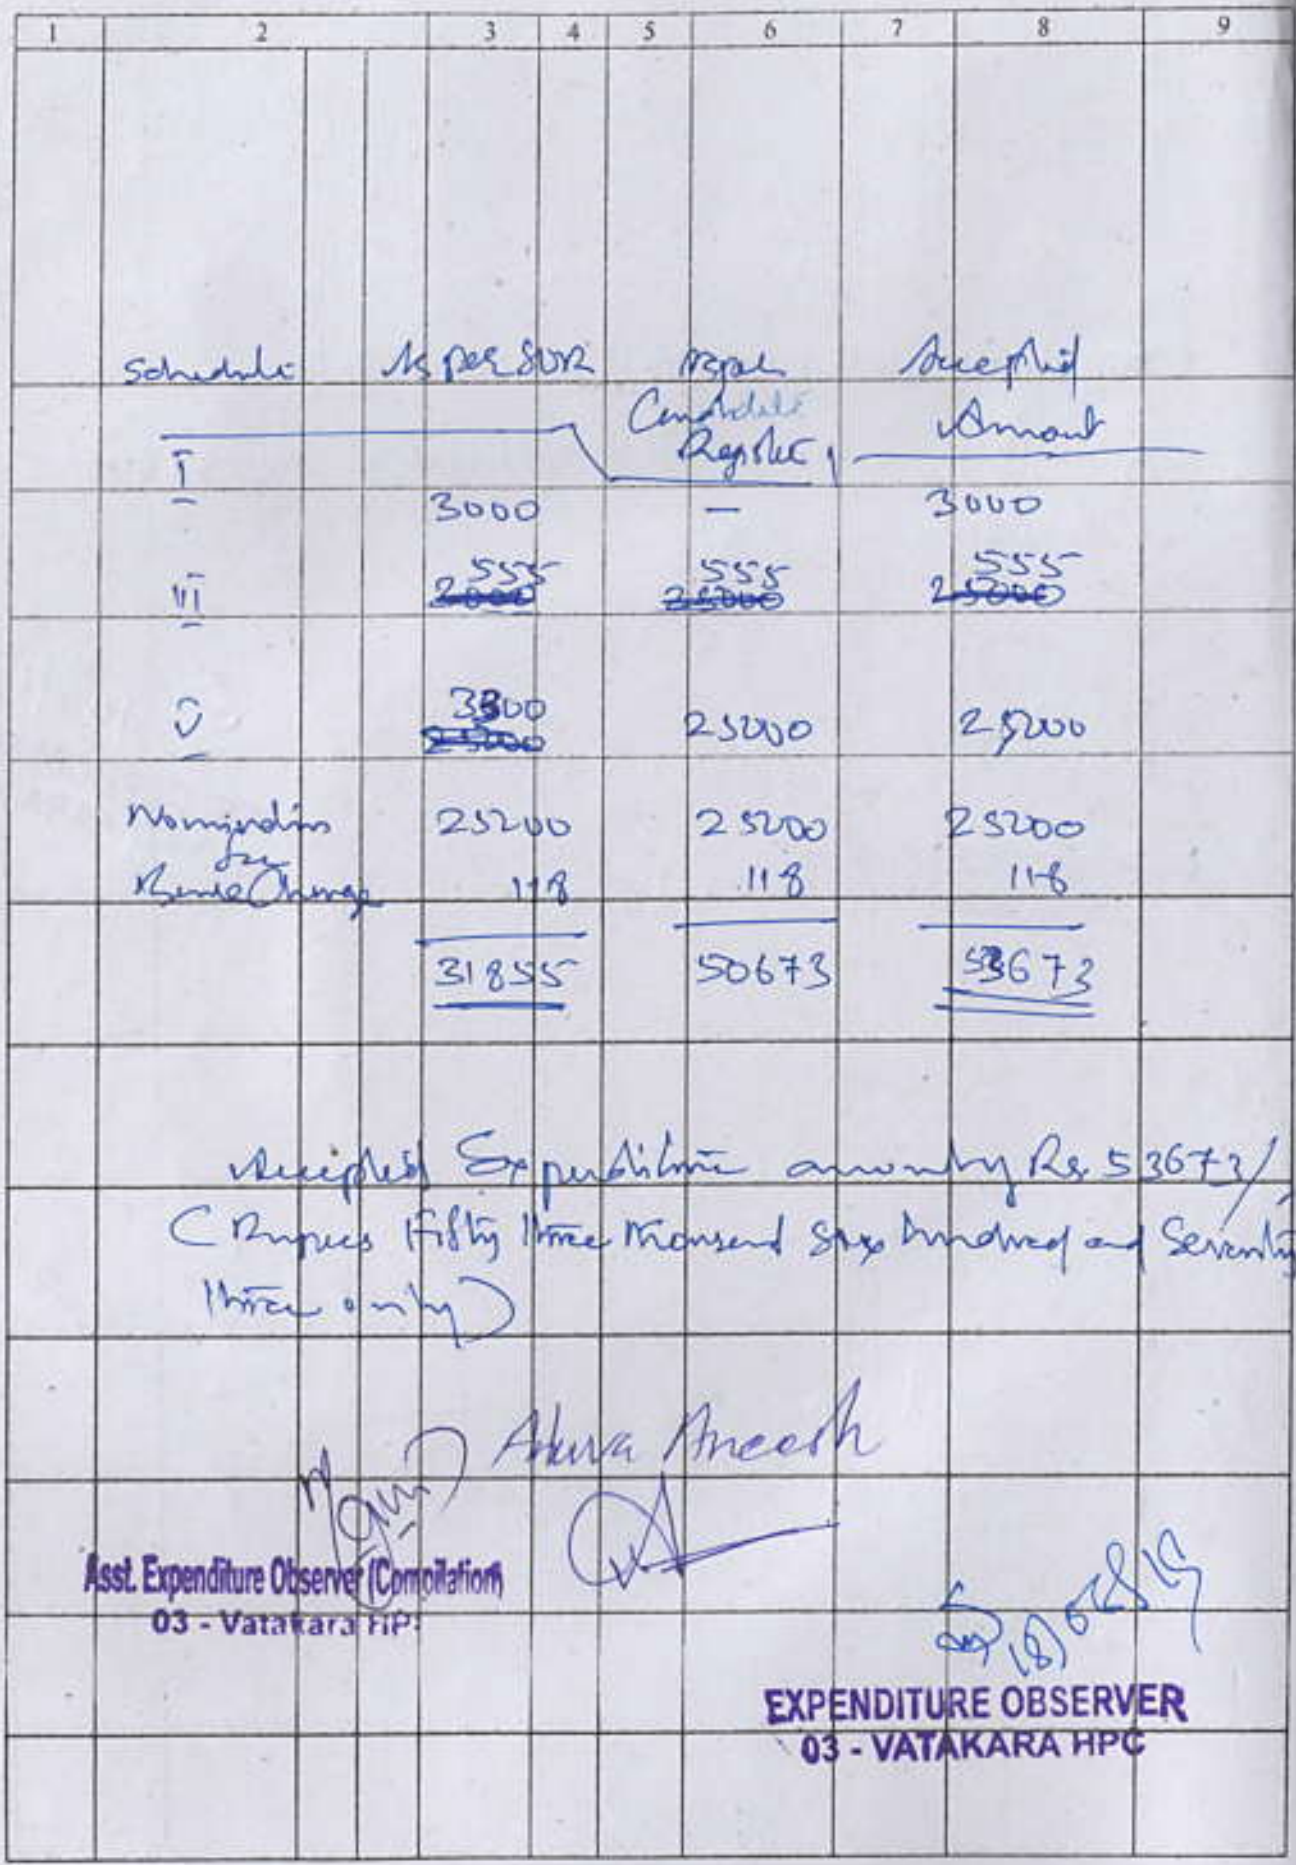 1 2 3 4 5 6 7 8 9
Schedule As per SOR As per Accepted
Candidate Amount
Register
I
3000 — 3000
555 555 555
VI 25000 25000
3300
V 25000 25000 25000
Nomination 25000 25000 25000
fee
Bank Charge 118 118 118
31855 50673 53673
Accepted Expenditure amounting Rs. 53673/
(Rupees Fifty three thousand Six hundred and Seventy
three only)
Aneesh
Asst. Expenditure Observer (Compilation)
03 - Vatakara HP
EXPENDITURE OBSERVER
03 - VATAKARA HPC